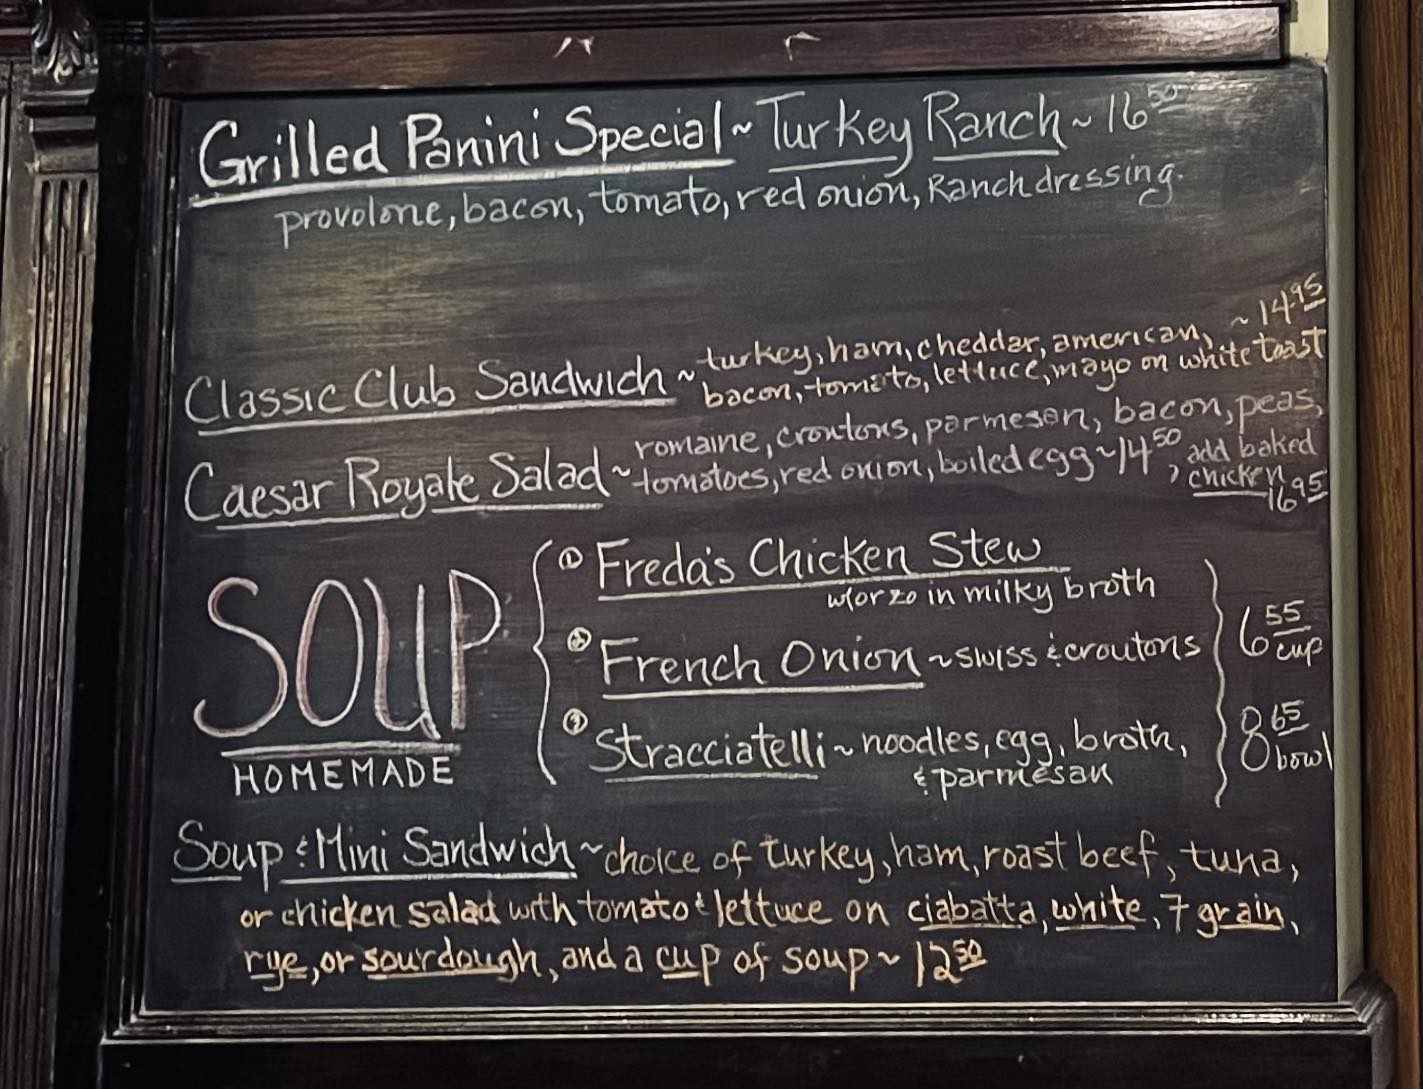 Grilled Panini Special ~ Turkey Ranch ~ 16 50
provolone, bacon, tomato, red onion, Ranch dressing.
Classic Club Sandwich ~ turkey, ham, cheddar, american, ~ 14.95
bacon, tomato, lettuce, mayo on white toast
Caesar Royale Salad ~ romaine, croutons, parmesan, bacon, peas,
tomatoes, red onion, boiled egg ~ 14 50, add baked
chicken 16 95
SOUP
HOMEMADE
① Freda's Chicken Stew
w/orzo in milky broth
② French Onion ~ swiss & croutons
③ Stracciatelli ~ noodles, egg, broth,
& parmesan
6 55 cup
8 65 bowl
Soup & Mini Sandwich ~ choice of turkey, ham, roast beef, tuna,
or chicken salad with tomato & lettuce on ciabatta, white, 7 grain,
rye, or sourdough, and a cup of soup ~ 12 50